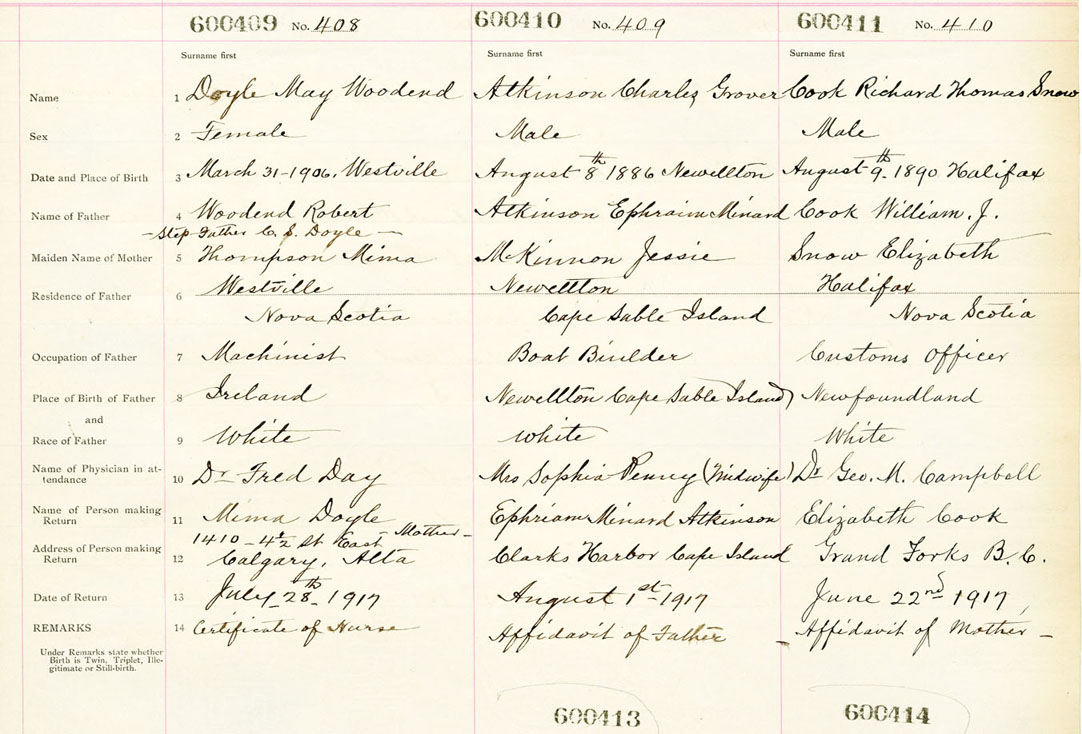 600409 No. 408 600410 No. 409 600411 No. 410
Surname first Surname first Surname first
Name 1 Doyle May Woodend Atkinson Charles Grover Cook Richard Thomas Snow
Sex 2 Female Male Male
Date and Place of Birth 3 March 31-1906. Westville August 8th 1886 Newellton August 9th. 1890 Halifax
Name of Father 4 Woodend Robert Atkinson Ephraim Minard Cook William. J.
-Step Father C. S. Doyle-
Maiden Name of Mother 5 Thompson Mima McKinnon Jessie Snow Elizabeth
Residence of Father 6 Westville Newellton Halifax
Nova Scotia Cape Sable Island Nova Scotia
Occupation of Father 7 Machinist Boat Biulder Customs Officer
Place of Birth of Father 8 Ireland Newellton Cape Sable Island) Newfoundland
and
Race of Father 9 White White White
Name of Physician in at-
tendance 10 Dr Fred Day Mrs Sophia Penny (Midwife) Dr Geo. M. Campbell
Name of Person making
Return 11 Mima Doyle Ephriam Minard Atkinson Elizabeth Cook
1410-4½ St East Mother-
Address of Person making
Return 12 Calgary, Alta Clarks Harbor Cape Island Grand Forks B.C.
Date of Return 13 July 28th 1917 August 1st-1917 June 22nd 1917,
REMARKS 14 Certificate of Nurse Affidavit of Father Affidavit of Mother-
Under Remarks state whether
Birth is Twin, Triplet, Ille-
gitimate or Still-birth.
600413 600414